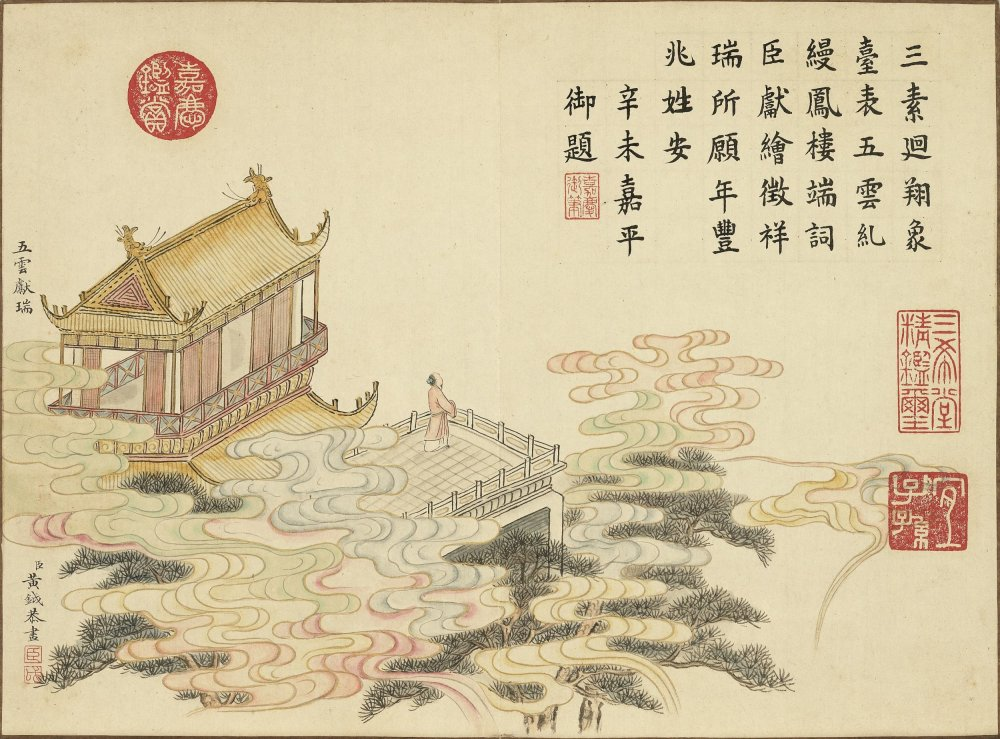 三素迴翔象
臺表五雲糺
縵鳳樓端詞
臣獻繪徵祥
瑞所願年豐
兆姓安
辛未嘉平
御題
嘉慶御筆
嘉慶鑑賞
三希堂精鑑璽
宜子孫
五雲獻瑞
臣黃鉞恭畫